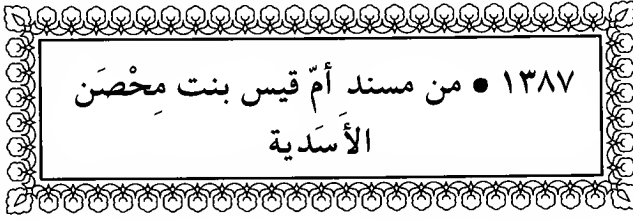 ١٣٨٧ • من مسند أمّ قيس بنت مِحْصَن
الأَسَدية